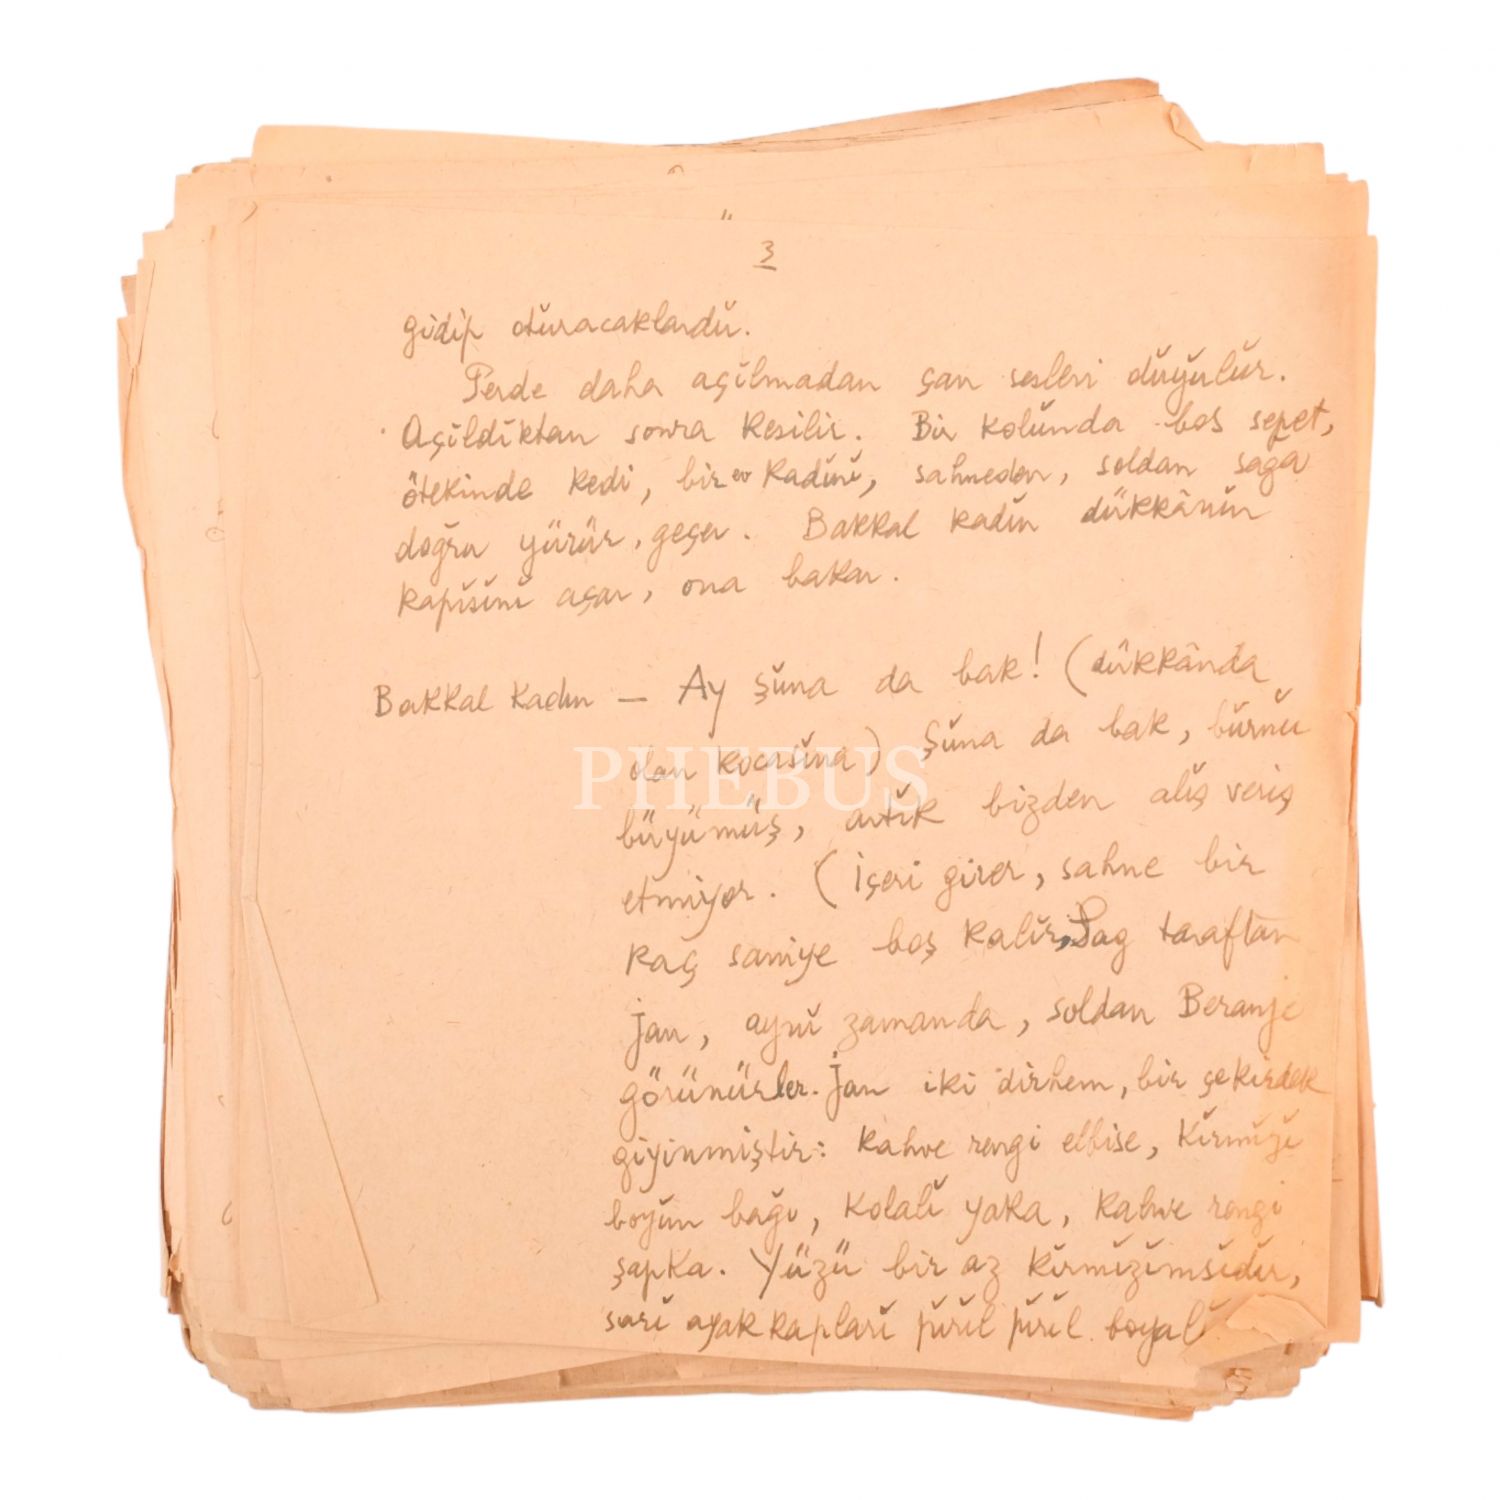 3
gidip oturacaklardır.
Perde daha açılmadan çan sesleri duyulur.
Açıldıktan sonra kesilir. Bir kolunda boş sepet,
ötekinde kedi, bir ev kadını, sahneden, soldan sağa
doğru yürür, geçer. Bakkal kadın dükkânın
kapısını açar, ona bakar.
Bakkal kadın — Ay şuna da bak! (dükkânda
olan kocasına) Şuna da bak, burnu
büyümüş, artık bizden alış veriş
etmiyor. (İçeri girer, sahne bir
kaç saniye boş kalır, Sağ taraftan
Jan, aynı zamanda, soldan Beranje
görünürler. Jan iki dirhem, bir çekirdek
giyinmiştir: kahve rengi elbise, kırmızı
boyun bağı, kolalı yaka, kahve rengi
şapka. Yüzü bir az kırmızımsıdır,
sarı ayakkapları pırıl pırıl boyalı
PHEBUS